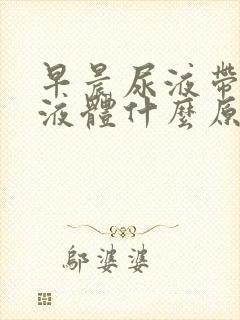 早晨尿液帶
液體什麼原
鄔婆婆